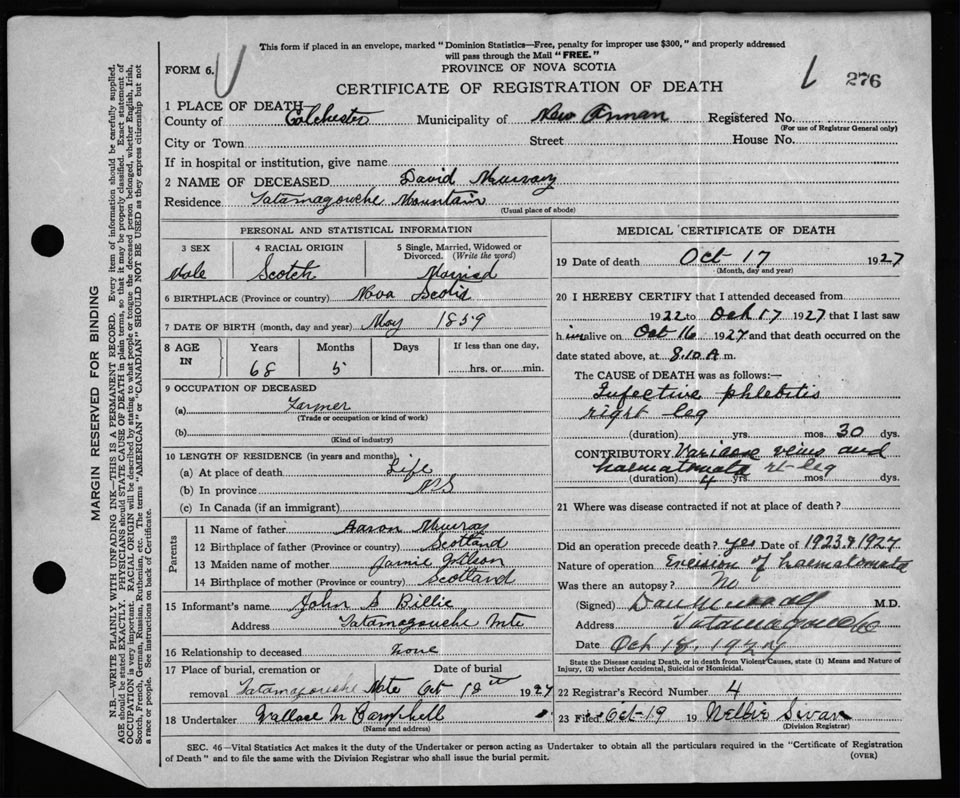 This form if placed in an envelope, marked "Dominion Statistics—Free, penalty for improper use $300," and properly addressed
will pass through the Mail "FREE."
FORM 6.
PROVINCE OF NOVA SCOTIA
276
CERTIFICATE OF REGISTRATION OF DEATH
1 PLACE OF DEATH
County of Colchester Municipality of New Annan Registered No.
(For use of Registrar General only)
City or Town Street House No.
If in hospital or institution, give name
2 NAME OF DECEASED David Murray
Residence Tatamagouche Mountain
(Usual place of abode)
PERSONAL AND STATISTICAL INFORMATION
3 SEX 4 RACIAL ORIGIN 5 Single, Married, Widowed or
Divorced. (Write the word)
Male Scotch Married
6 BIRTHPLACE (Province or country) Nova Scotia
7 DATE OF BIRTH (month, day and year) May 1859
8 AGE IN Years Months Days If less than one day,
68 5 hrs. or min.
9 OCCUPATION OF DECEASED
(a) Farmer
(Trade or occupation or kind of work)
(b)
(Kind of industry)
10 LENGTH OF RESIDENCE (in years and months)
(a) At place of death Life
(b) In province NS
(c) In Canada (if an immigrant)
Parents
11 Name of father Aaron Murray
12 Birthplace of father (Province or country) Scotland
13 Maiden name of mother
14 Birthplace of mother (Province or country) Scotland
15 Informant's name John S Billie
Address Tatamagouche Mte
16 Relationship to deceased none
17 Place of burial, cremation or Date of burial
removal Tatamagouche Mte Oct 1927
18 Undertaker Wallace M Campbell
(Name and address)
MEDICAL CERTIFICATE OF DEATH
19 Date of death Oct 17 1927
(Month, day and year)
20 I HEREBY CERTIFY that I attended deceased from
1922 to Oct 17 1927 that I last saw
him alive on Oct 16 1927 and that death occurred on the
date stated above, at 8.10 A m.
The CAUSE of DEATH was as follows:—
Infective phlebitis
right leg
(duration) yrs. mos. 30 dys.
CONTRIBUTORY Varicose veins and
haematomata rt leg
(duration) 4 yrs. mos. dys.
21 Where was disease contracted if not at place of death?
Did an operation precede death? yes Date of 1923 & 1927
Nature of operation Excision of haematomata
Was there an autopsy? No
(Signed) M.D.
Address Tatamagouche
Date Oct 18, 1927
State the Disease causing Death, or in death from Violent Causes, state (1) Means and Nature of
Injury, (2) whether Accidental, Suicidal or Homicidal.
22 Registrar's Record Number 4
23 Filed Oct-19 19 Nellie Swan
(Division Registrar)
SEC. 46—Vital Statistics Act makes it the duty of the Undertaker or person acting as Undertaker to obtain all the particulars required in the "Certificate of Registration
of Death" and to file the same with the Division Registrar who shall issue the burial permit.
(OVER)
MARGIN RESERVED FOR BINDING
N.B.—WRITE PLAINLY WITH UNFADING INK—THIS IS A PERMANENT RECORD. Every item of information should be carefully supplied.
AGE should be stated EXACTLY. PHYSICIANS should STATE CAUSE OF DEATH in plain terms, so that it may be properly classified. Exact statement of
OCCUPATION is very important. RACIAL ORIGIN will be described by stating to what people or tongue the deceased person belonged, whether English, Irish,
Scotch, French, German, Russian, Ruthenian, etc. The terms "AMERICAN" or "CANADIAN" SHOULD NOT BE USED as they express citizenship but not
a race or people. See instructions on back of Certificate.